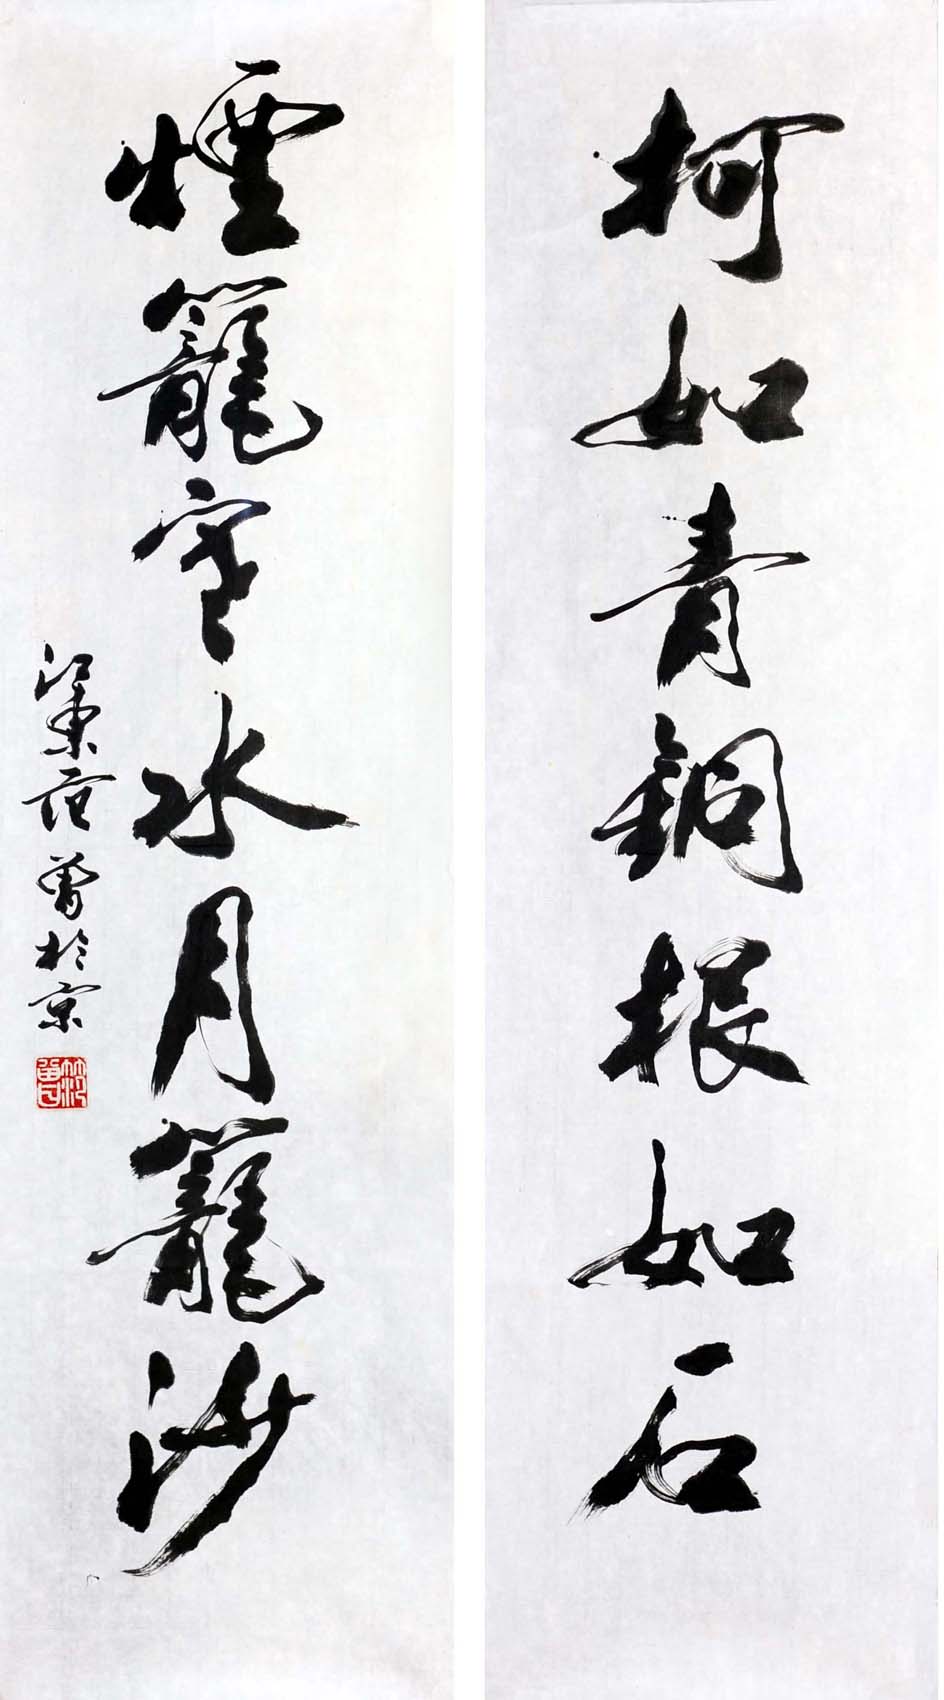 柯如青銅根如石
煙籠寒水月籠沙
江東范曾於京